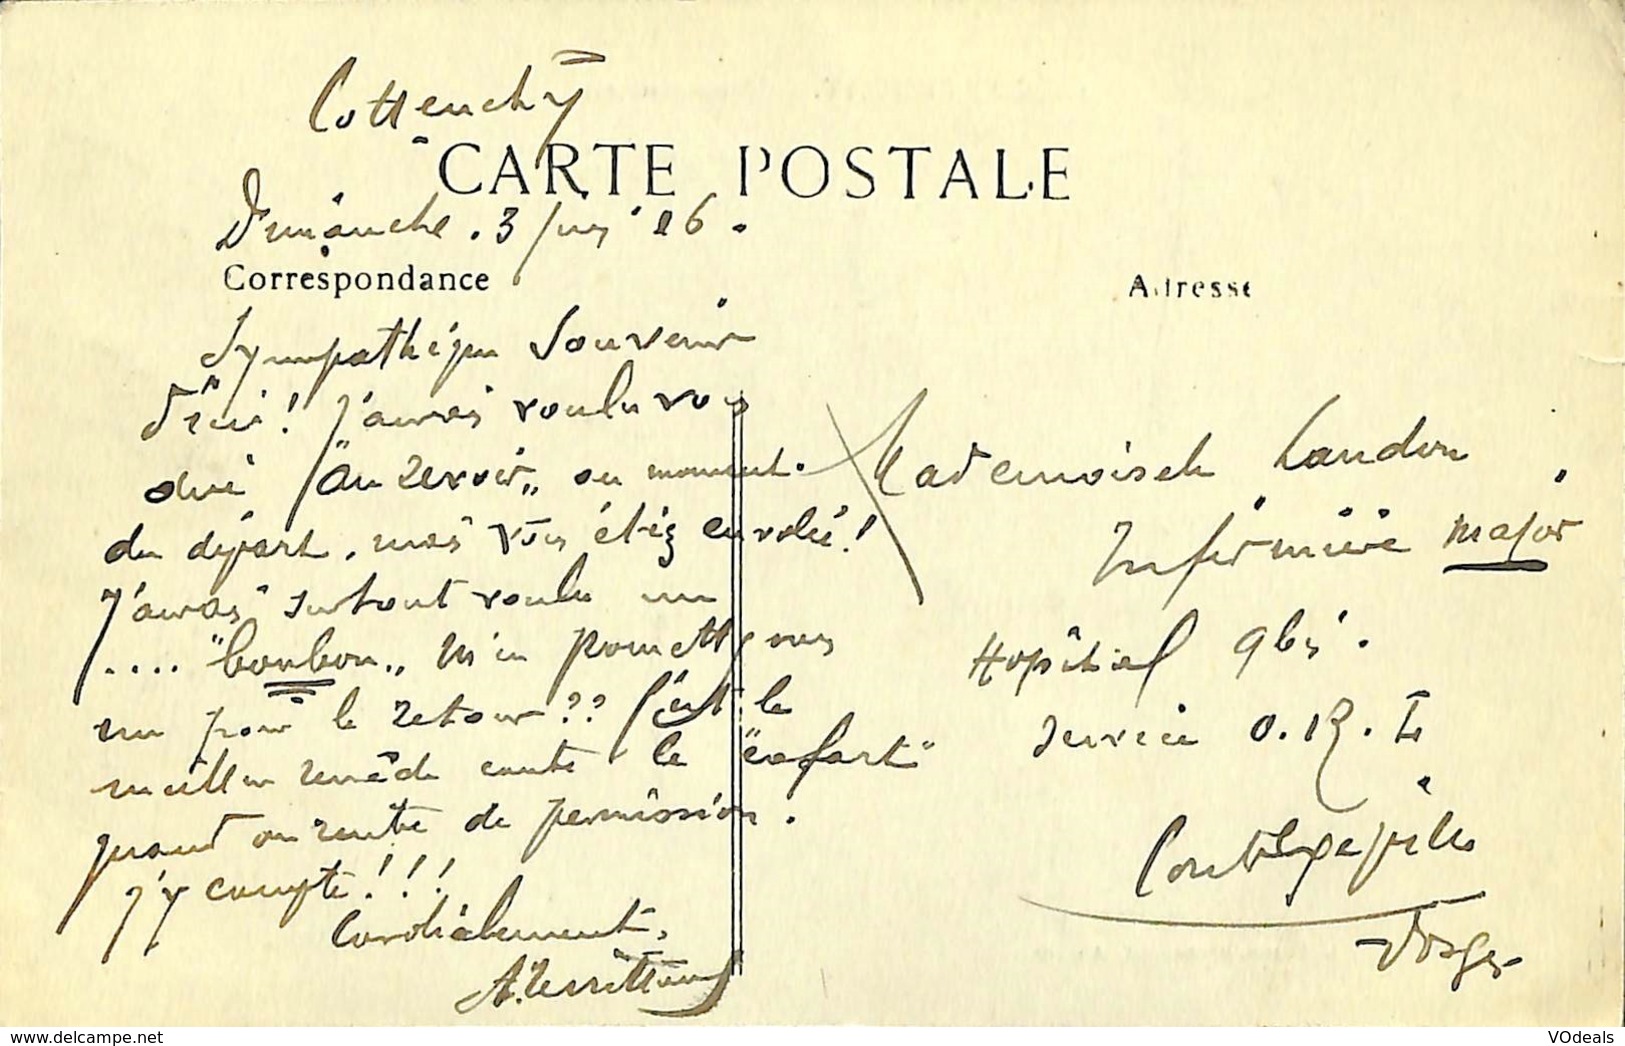 Cottenchy
CARTE POSTALE
Dimanche. 3 16.
Correspondance
Adresse
Sympathique Souvenir
d'ici! J'aurais voulu vous
dire "Au revoir" au moment
du départ, mais vous étiez envolée!
J'aurais surtout voulu un
.... "bonbon" M'en promettez vous
un pour le retour?? C'est le
meilleur remède contre le "cafart"
quand on rentre de permission.
J'y compte!!!
Cordialement,
Mademoiselle Landon
Infirmière major
Hôpital
Service O.R.L
Contrexéville
Vosges
VOdeals